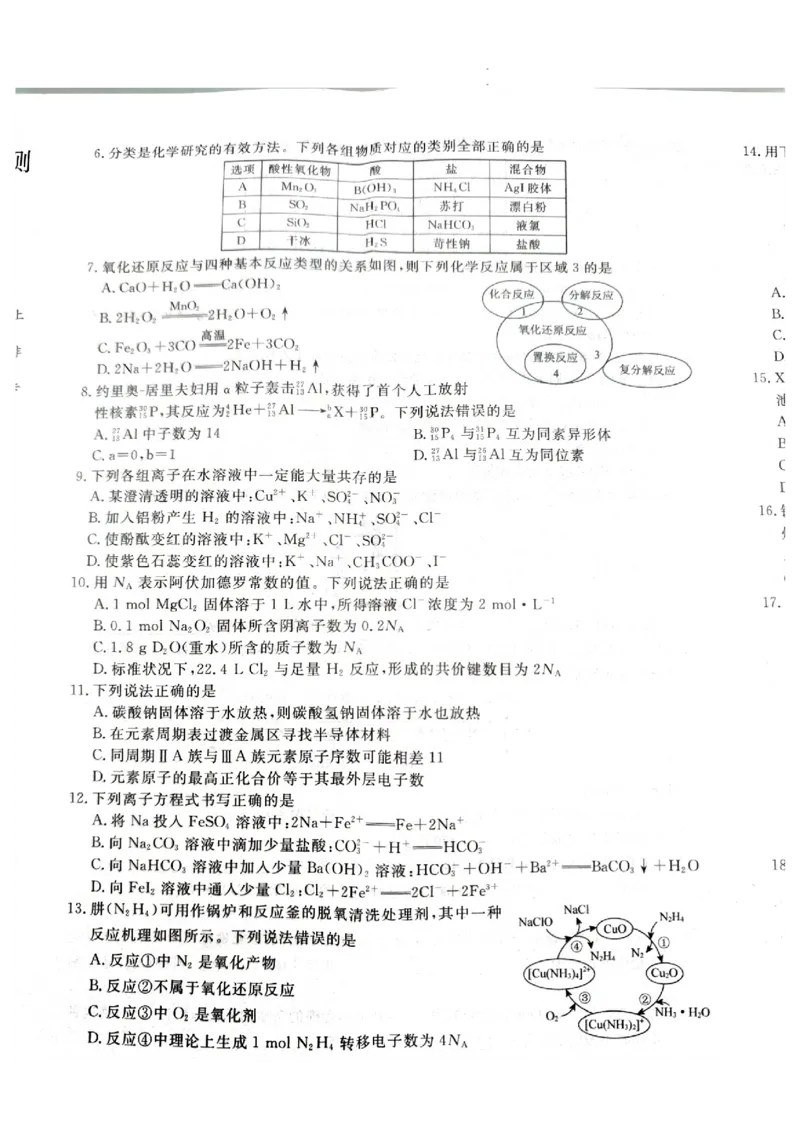 则
6.分类是化学研究的有效方法。下列各组物质对应的类别全部正确的是
选项 酸性氧化物 酸 盐 混合物
A Mn₂O₇ B(OH)₃ NH₄Cl AgI胶体
B SO₂ NaH₂PO₄ 苏打 漂白粉
C SiO₂ HCl NaHCO₃ 液氯
D 干冰 H₂S 苛性钠 盐酸
7.氧化还原反应与四种基本反应类型的关系如图,则下列化学反应属于区域3的是
A.CaO+H₂O══Ca(OH)₂
B.2H₂O₂ ══MnO₂══ 2H₂O+O₂↑
C.Fe₂O₃+3CO ══高温══ 2Fe+3CO₂
D.2Na+2H₂O══2NaOH+H₂↑
化合反应 分解反应
1 2
氧化还原反应
置换反应 3
4 复分解反应
8.约里奥-居里夫妇用α粒子轰击²⁷₁₃Al,获得了首个人工放射
性核素³⁰₁₅P,其反应为⁴₂He+²⁷₁₃Al⟶ᵇₐX+³⁰₁₅P。下列说法错误的是
A.²⁷₁₃Al中子数为14
B.³⁰₁₅P₄与³¹₁₅P₄互为同素异形体
C.a=0,b=1
D.²⁷₁₃Al与²⁶₁₃Al互为同位素
9.下列各组离子在水溶液中一定能大量共存的是
A.某澄清透明的溶液中:Cu²⁺、K⁺、SO₄²⁻、NO₃⁻
B.加入铝粉产生H₂的溶液中:Na⁺、NH₄⁺、SO₄²⁻、Cl⁻
C.使酚酞变红的溶液中:K⁺、Mg²⁺、Cl⁻、SO₄²⁻
D.使紫色石蕊变红的溶液中:K⁺、Na⁺、CH₃COO⁻、I⁻
10.用Nₐ表示阿伏加德罗常数的值。下列说法正确的是
A.1 mol MgCl₂固体溶于1 L水中,所得溶液Cl⁻浓度为2 mol·L⁻¹
B.0.1 mol Na₂O₂固体所含阴离子数为0.2Nₐ
C.1.8 g D₂O(重水)所含的质子数为Nₐ
D.标准状况下,22.4 L Cl₂与足量H₂反应,形成的共价键数目为2Nₐ
11.下列说法正确的是
A.碳酸钠固体溶于水放热,则碳酸氢钠固体溶于水也放热
B.在元素周期表过渡金属区寻找半导体材料
C.同周期ⅡA族与ⅢA族元素原子序数可能相差11
D.元素原子的最高正化合价等于其最外层电子数
12.下列离子方程式书写正确的是
A.将Na投入FeSO₄溶液中:2Na+Fe²⁺══Fe+2Na⁺
B.向Na₂CO₃溶液中滴加少量盐酸:CO₃²⁻+H⁺══HCO₃⁻
C.向NaHCO₃溶液中加入少量Ba(OH)₂溶液:HCO₃⁻+OH⁻+Ba²⁺══BaCO₃↓+H₂O
D.向FeI₂溶液中通入少量Cl₂:Cl₂+2Fe²⁺══2Cl⁻+2Fe³⁺
13.肼(N₂H₄)可用作锅炉和反应釜的脱氧清洗处理剂,其中一种
反应机理如图所示。下列说法错误的是
A.反应①中N₂是氧化产物
B.反应②不属于氧化还原反应
C.反应③中O₂是氧化剂
D.反应④中理论上生成1 mol N₂H₄转移电子数为4Nₐ
NaCl
NaClO CuO N₂H₄
④ N₂H₄ N₂ ①
[Cu(NH₃)₄]²⁺ Cu₂O
③ ②
O₂ [Cu(NH₃)₂]⁺ NH₃·H₂O
14.用
A.
B.
C.
D
15.X
池
A
B
C
16.
17.
18